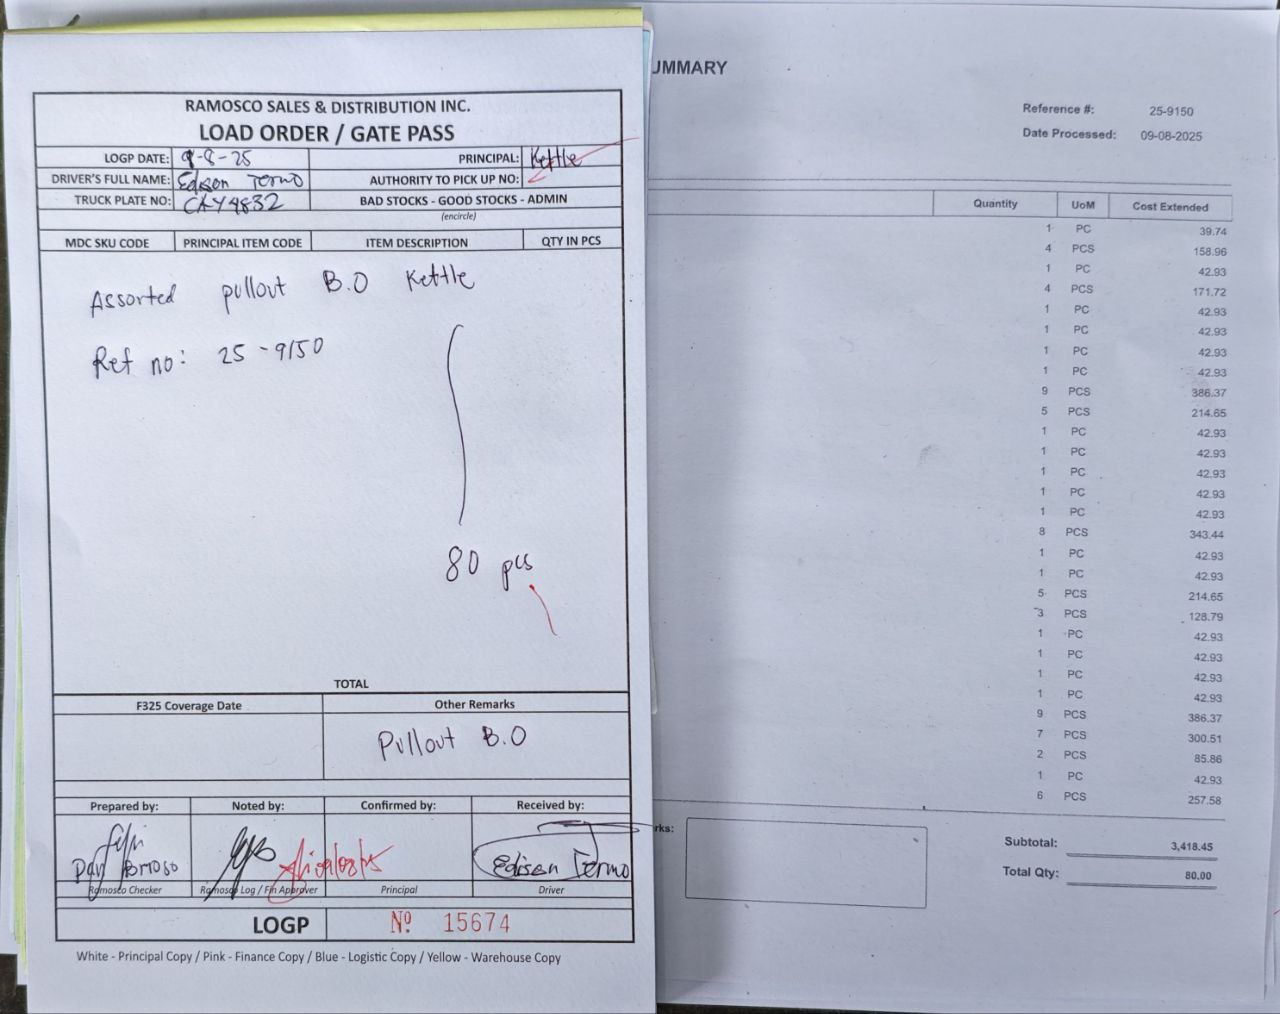 RAMOSCO SALES & DISTRIBUTION INC.
LOAD ORDER / GATE PASS
LOGP DATE: 9-8-25 PRINCIPAL: Kettle
DRIVER'S FULL NAME: Edison Termo AUTHORITY TO PICK UP NO:
TRUCK PLATE NO: CAY4832 BAD STOCKS - GOOD STOCKS - ADMIN
(encircle)
MDC SKU CODE PRINCIPAL ITEM CODE ITEM DESCRIPTION QTY IN PCS
Assorted pullout B.O Kettle
Ref no: 25-9150
80 pcs
TOTAL
F325 Coverage Date Other Remarks
Pullout B.O
Prepared by: Noted by: Confirmed by: Received by:
Edison Termo
Ramosco Checker Ramosco Log / Fin Approver Principal Driver
LOGP Nº 15674
White - Principal Copy / Pink - Finance Copy / Blue - Logistic Copy / Yellow - Warehouse Copy
UMMARY
Reference #: 25-9150
Date Processed: 09-08-2025
Quantity UoM Cost Extended
1 PC 39.74
4 PCS 158.96
1 PC 42.93
4 PCS 171.72
1 PC 42.93
1 PC 42.93
1 PC 42.93
1 PC 42.93
9 PCS 386.37
5 PCS 214.65
1 PC 42.93
1 PC 42.93
1 PC 42.93
1 PC 42.93
1 PC 42.93
8 PCS 343.44
1 PC 42.93
1 PC 42.93
5 PCS 214.65
3 PCS 128.79
1 PC 42.93
1 PC 42.93
1 PC 42.93
1 PC 42.93
9 PCS 386.37
7 PCS 300.51
2 PCS 85.86
1 PC 42.93
6 PCS 257.58
rks:
Subtotal: 3,418.45
Total Qty: 80.00